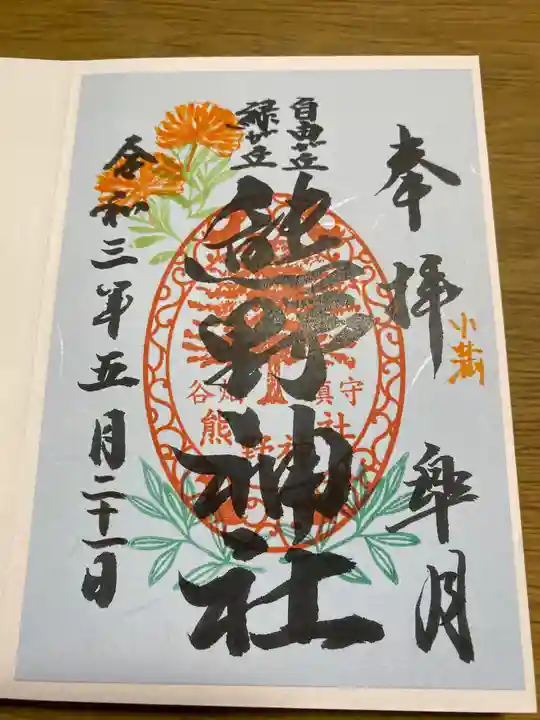 奉拝
小満
皐月
自由が丘
緑が丘
熊野神社
谷畑鎮守
熊野神社
令和三年五月二十一日